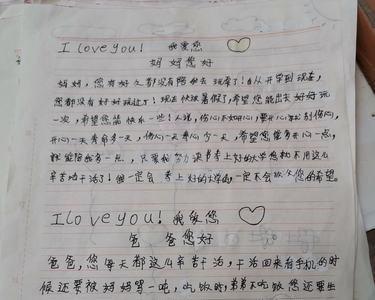 I love you! 我爱您
妈妈您好
妈妈,您有好久都没有陪我去玩了!自从开学到现在,
您都没有好好玩过了!现在快放暑假了,希望您能出去好好玩
一次,希望您能快乐一些!人说,伤心不如开心,要开心别伤心,
开心一天寿命多一天,伤心一天寿命少一天,希望您能多开心一点,
就能陪我多一点,只要我努力读书考上好的大学您就不用这么
辛苦干活了!但一定会考上好的大学的,一定不会让您的希望。
I love you! 我爱您
爸爸您好
爸爸,您每天都这么辛苦干活,干活回来看手机的时
候还要被妈妈骂一吨,吃饭时,弟弟不吃饭您还要生